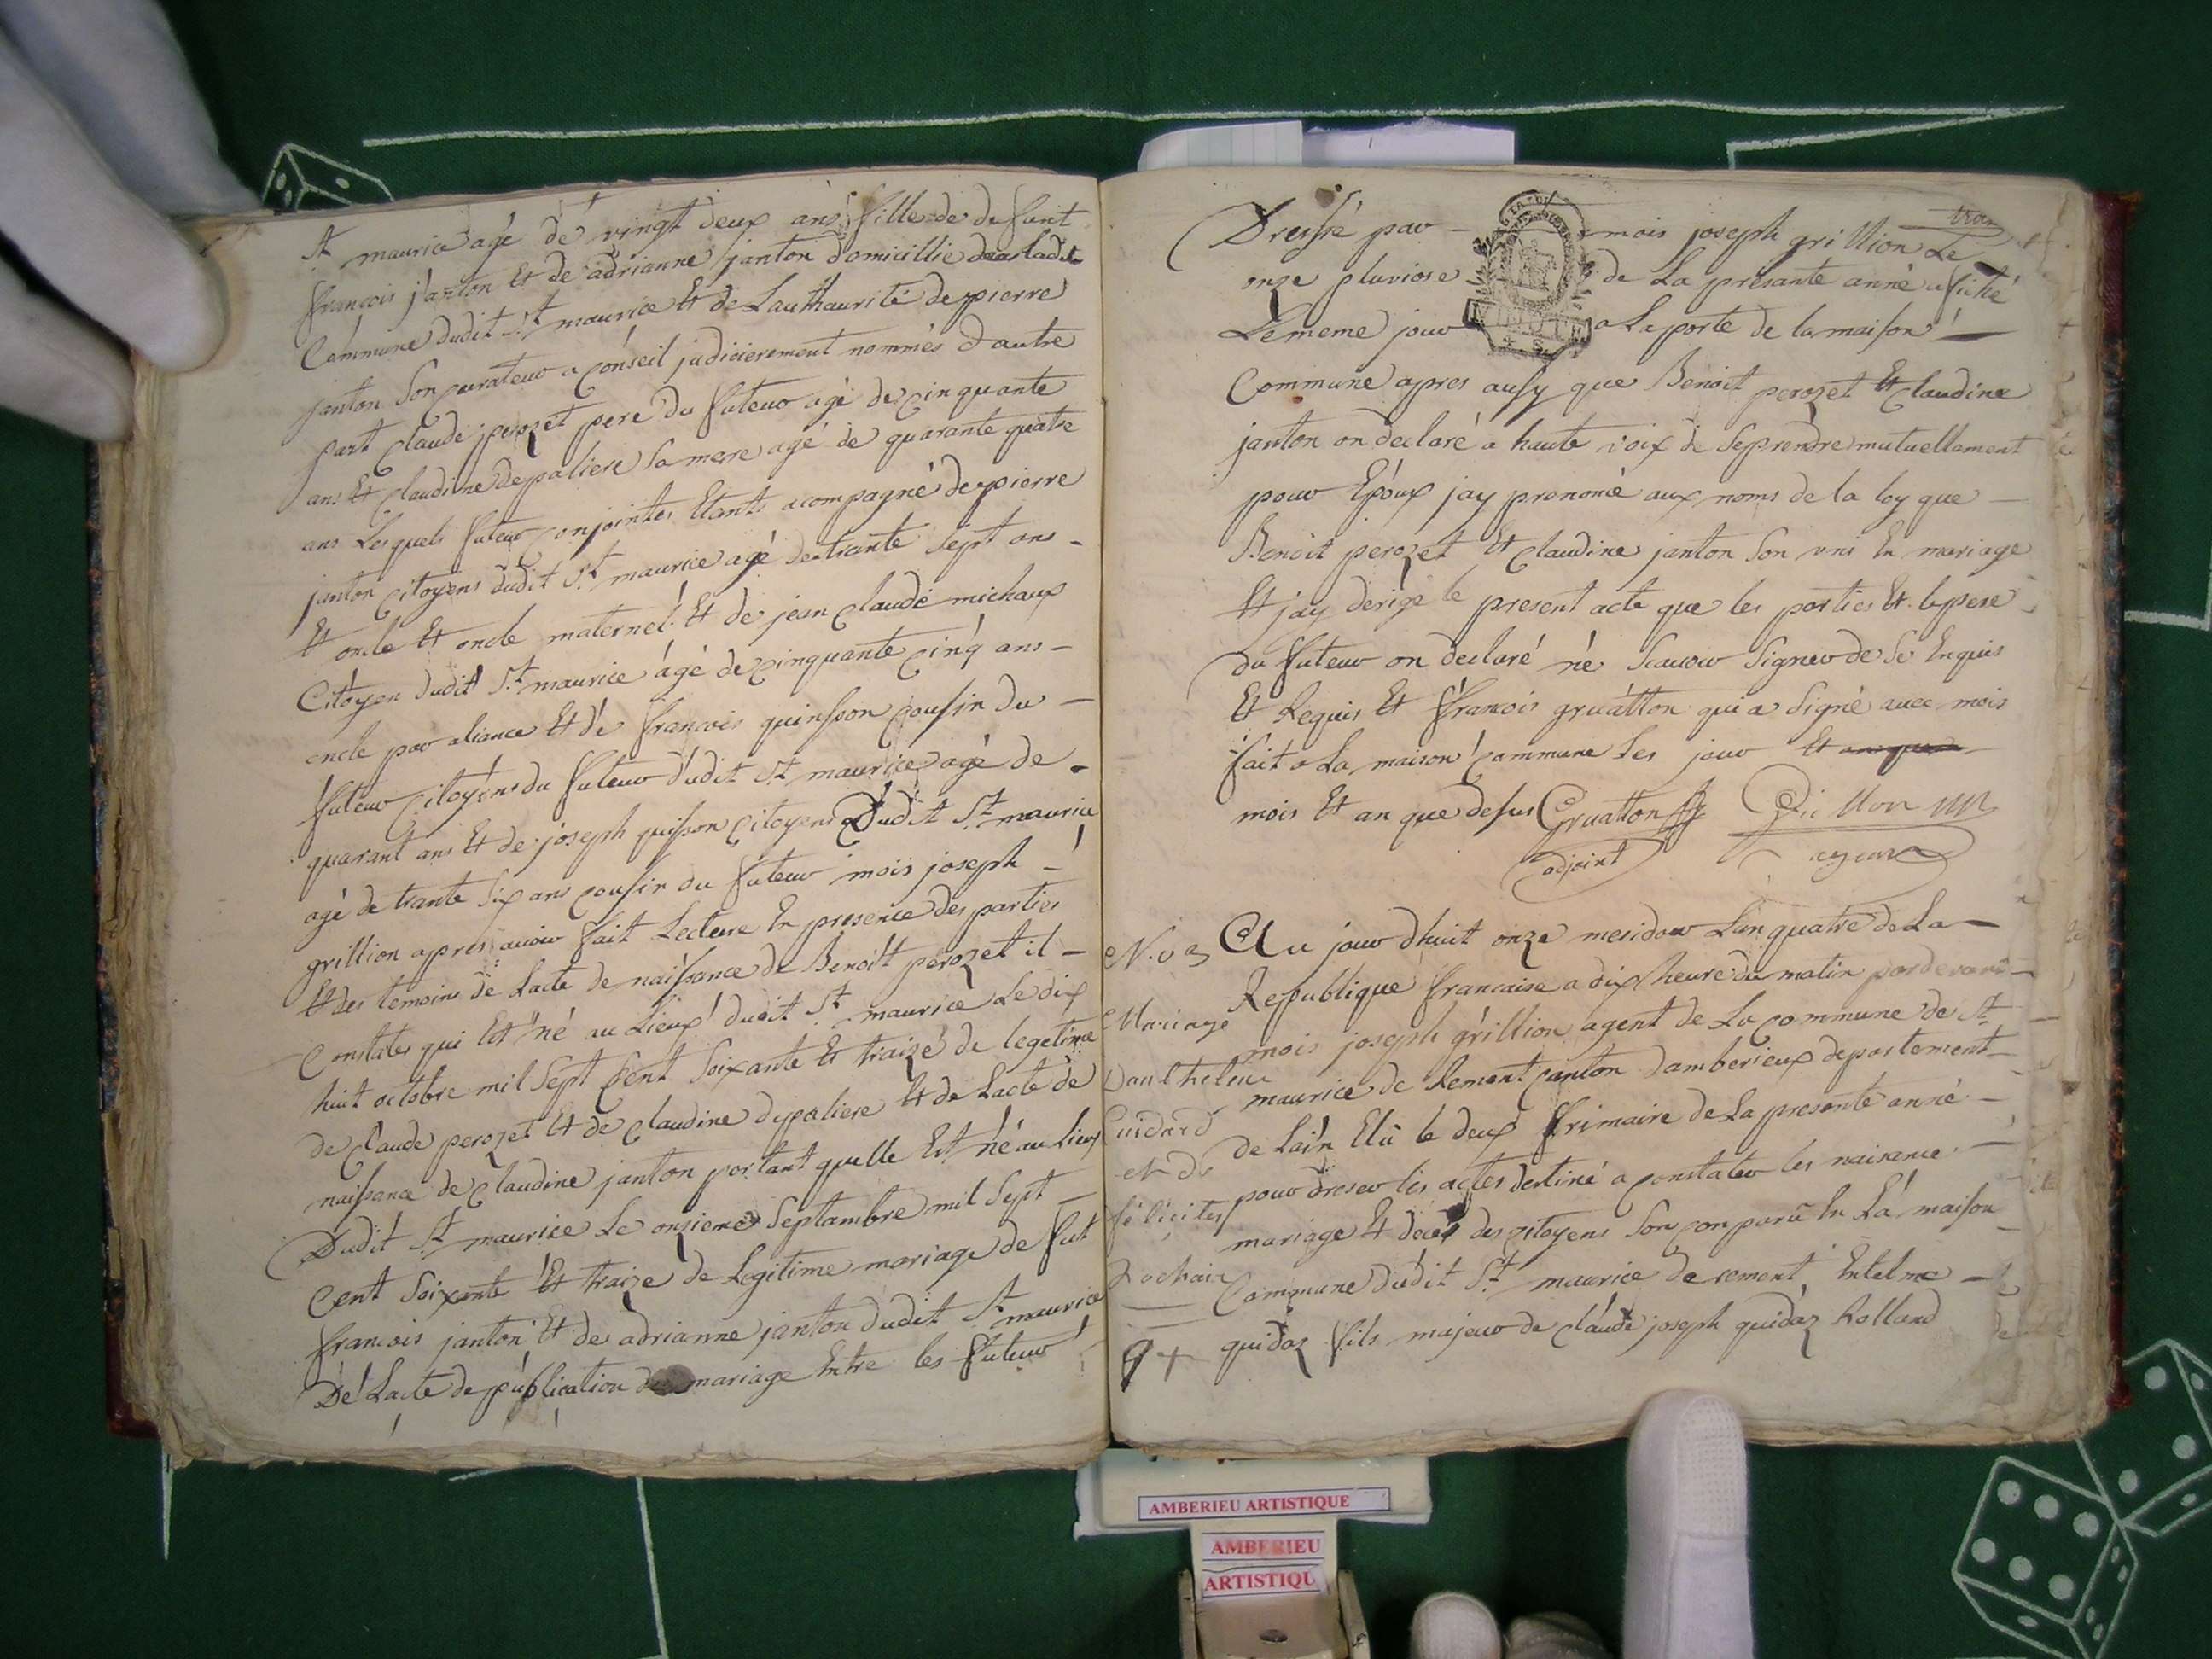 St maurice agé de vingt deux ans fille de defunt
francois janton Et de adrianne janton domicillie dans ladite
Commune dudit St maurice Et de Lauthaurité de pierre
janton Son curateur a conseil judicierement nommés d'autre
part Claude perozet pere du futeur agé de cinquante
ans Et Claudine depaliere Sa mere agé de quarante quatre
ans Lesquels futeur conjointes Etants acompagné de pierre
janton Citoyens dudit St maurice agé de trante Sept ans -
Et oncle Et oncle maternel Et de jean claude michaux
Citoyen dudit St maurice âgé de cinquante cinq ans -
oncle par aliance Et de francois quinsson cousin du -
futeur citoyens du futeur dudit St maurice agé de -
quarant ans Et de joseph quisson citoyens Dudit St maurice
agé de trante Six ans cousin du futeur mois joseph -
grillion apres avoir fait Lecture En presence des parties
Et des temoins de Lacte de naissance de Benoit perozet il -
Constates qui Est né au Lieux dudit St maurice Le dix
huit octobre mil Sept Cent Soixante Et traize de legetime
de Claude perozet Et de Claudine depaliere Et de Lacte de
naissance de Claudine janton portant quelle Est né au lieux
Dudit St maurice Le onzieme Septambre mil Sept -
Cent Soixante Et traize de Legitime mariage de fut
francois janton Et de adrianne janton dudit St maurice
De Lacte de publication de mariage Entre les futeur
Dressé par - mois joseph grillion Le
onze pluviose de La presante anné afiché
Le meme jour a La porte de la maison -
Commune apres ausy que Benoit perozet Et Claudine
janton on declaré a haute voix de Seprendre mutuellement
pour Epoux jay prononcé aux noms de la loy que -
Benoit perozet Et Claudine janton Son unis En mariage
Et jay derigé le present acte que les parties Et le pere
du futeur on declaré né Scavoir Signer de Se Enquis
Et Requis Et francois gruatton qui a Signé avec mois
fait a La maison Commune Les jour Et an que
mois Et an que desus Gruatton Grillion
adjoint agent
N. 3
Mariage
Guidard
et de
félicité
Rochair
Au jour dhuit onze mesidor Lan quatre de La -
Republique francaise a dix heure du matin pardevant -
mois joseph grillion agent de La Commune de St -
maurice de Remont canton damberieux departement -
de Lain Elû le deux frimaire de La presente anné -
pour dreser les actes destiné a constater les naisance -
mariage Et deces des citoyens Son conparû En La maison
Commune dudit St maurice de remont Entelme -
quidaz fils majeur de claude joseph quidaz Rolland
AMBERIEU ARTISTIQUE
AMBERIEU
ARTISTIQU